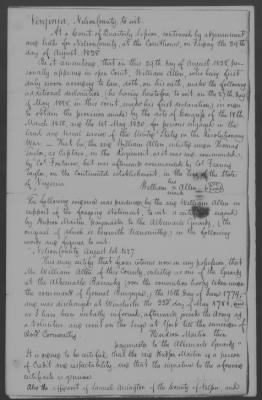 Virginia, Nelson County, to wit.
At a Court of Quarterly Session, continued by adjournment
and held for Nelson County, at the Courthouse, on Friday the 29th
day of August, 1828
Be it remembered, that on this 29th day of August 1828, per-
sonally appeared in open Court, William Allen, who being first
duly sworn according to law, doth, on his oath, make the following
additional declaration, (he having heretofore, to wit on the 27th day
of May 1828 in this court, made his first declaration,) in order
to obtain the provision made by the acts of Congress of the 18th
March 1818, and the 1st May 1820 for persons engaged in the
land and naval service of the United States in the Revolutionary
War. That he the said William Allen enlisted under Thomas
the Regiment
by Col. but was afterwards commanded by Col. Francis
Taylor, on the Continental establishment, in the line of the State
of Virginia
his
William x Allen
mark
The following evidence was produced by the said William Allen in
support of the foregoing statement, to wit: a certificate signed
by Hudson Martin paymaster to the Albemarle Guards, (the
original of which is herewith transmitted,) in the following
words and figures to wit:
Nelson County August 1st 1827
This may certify that from returns now in my possession, that
Mr. William Allen of this County, enlisted as one of the guards
at the Albemarle Barracks (over the convention troops taken under
the command of General Burgoyne), the 16th day of June 1779,
and was discharged at Winchester the 23rd day of May 1781 and
as I have been verbally informed, afterwards joined the army as
a Volunteer and went on the siege at York till the surrender of
Lord Cornwallis.
Hudson Martin then
paymaster to the Albemarle Guards.
It is order to be certified, that the said Hudson Martin is a person
of Credit and respectability, and that the signature to the aforesaid
certificate is genuine
Also the affidavit of Samuel of the County of Nelson, and